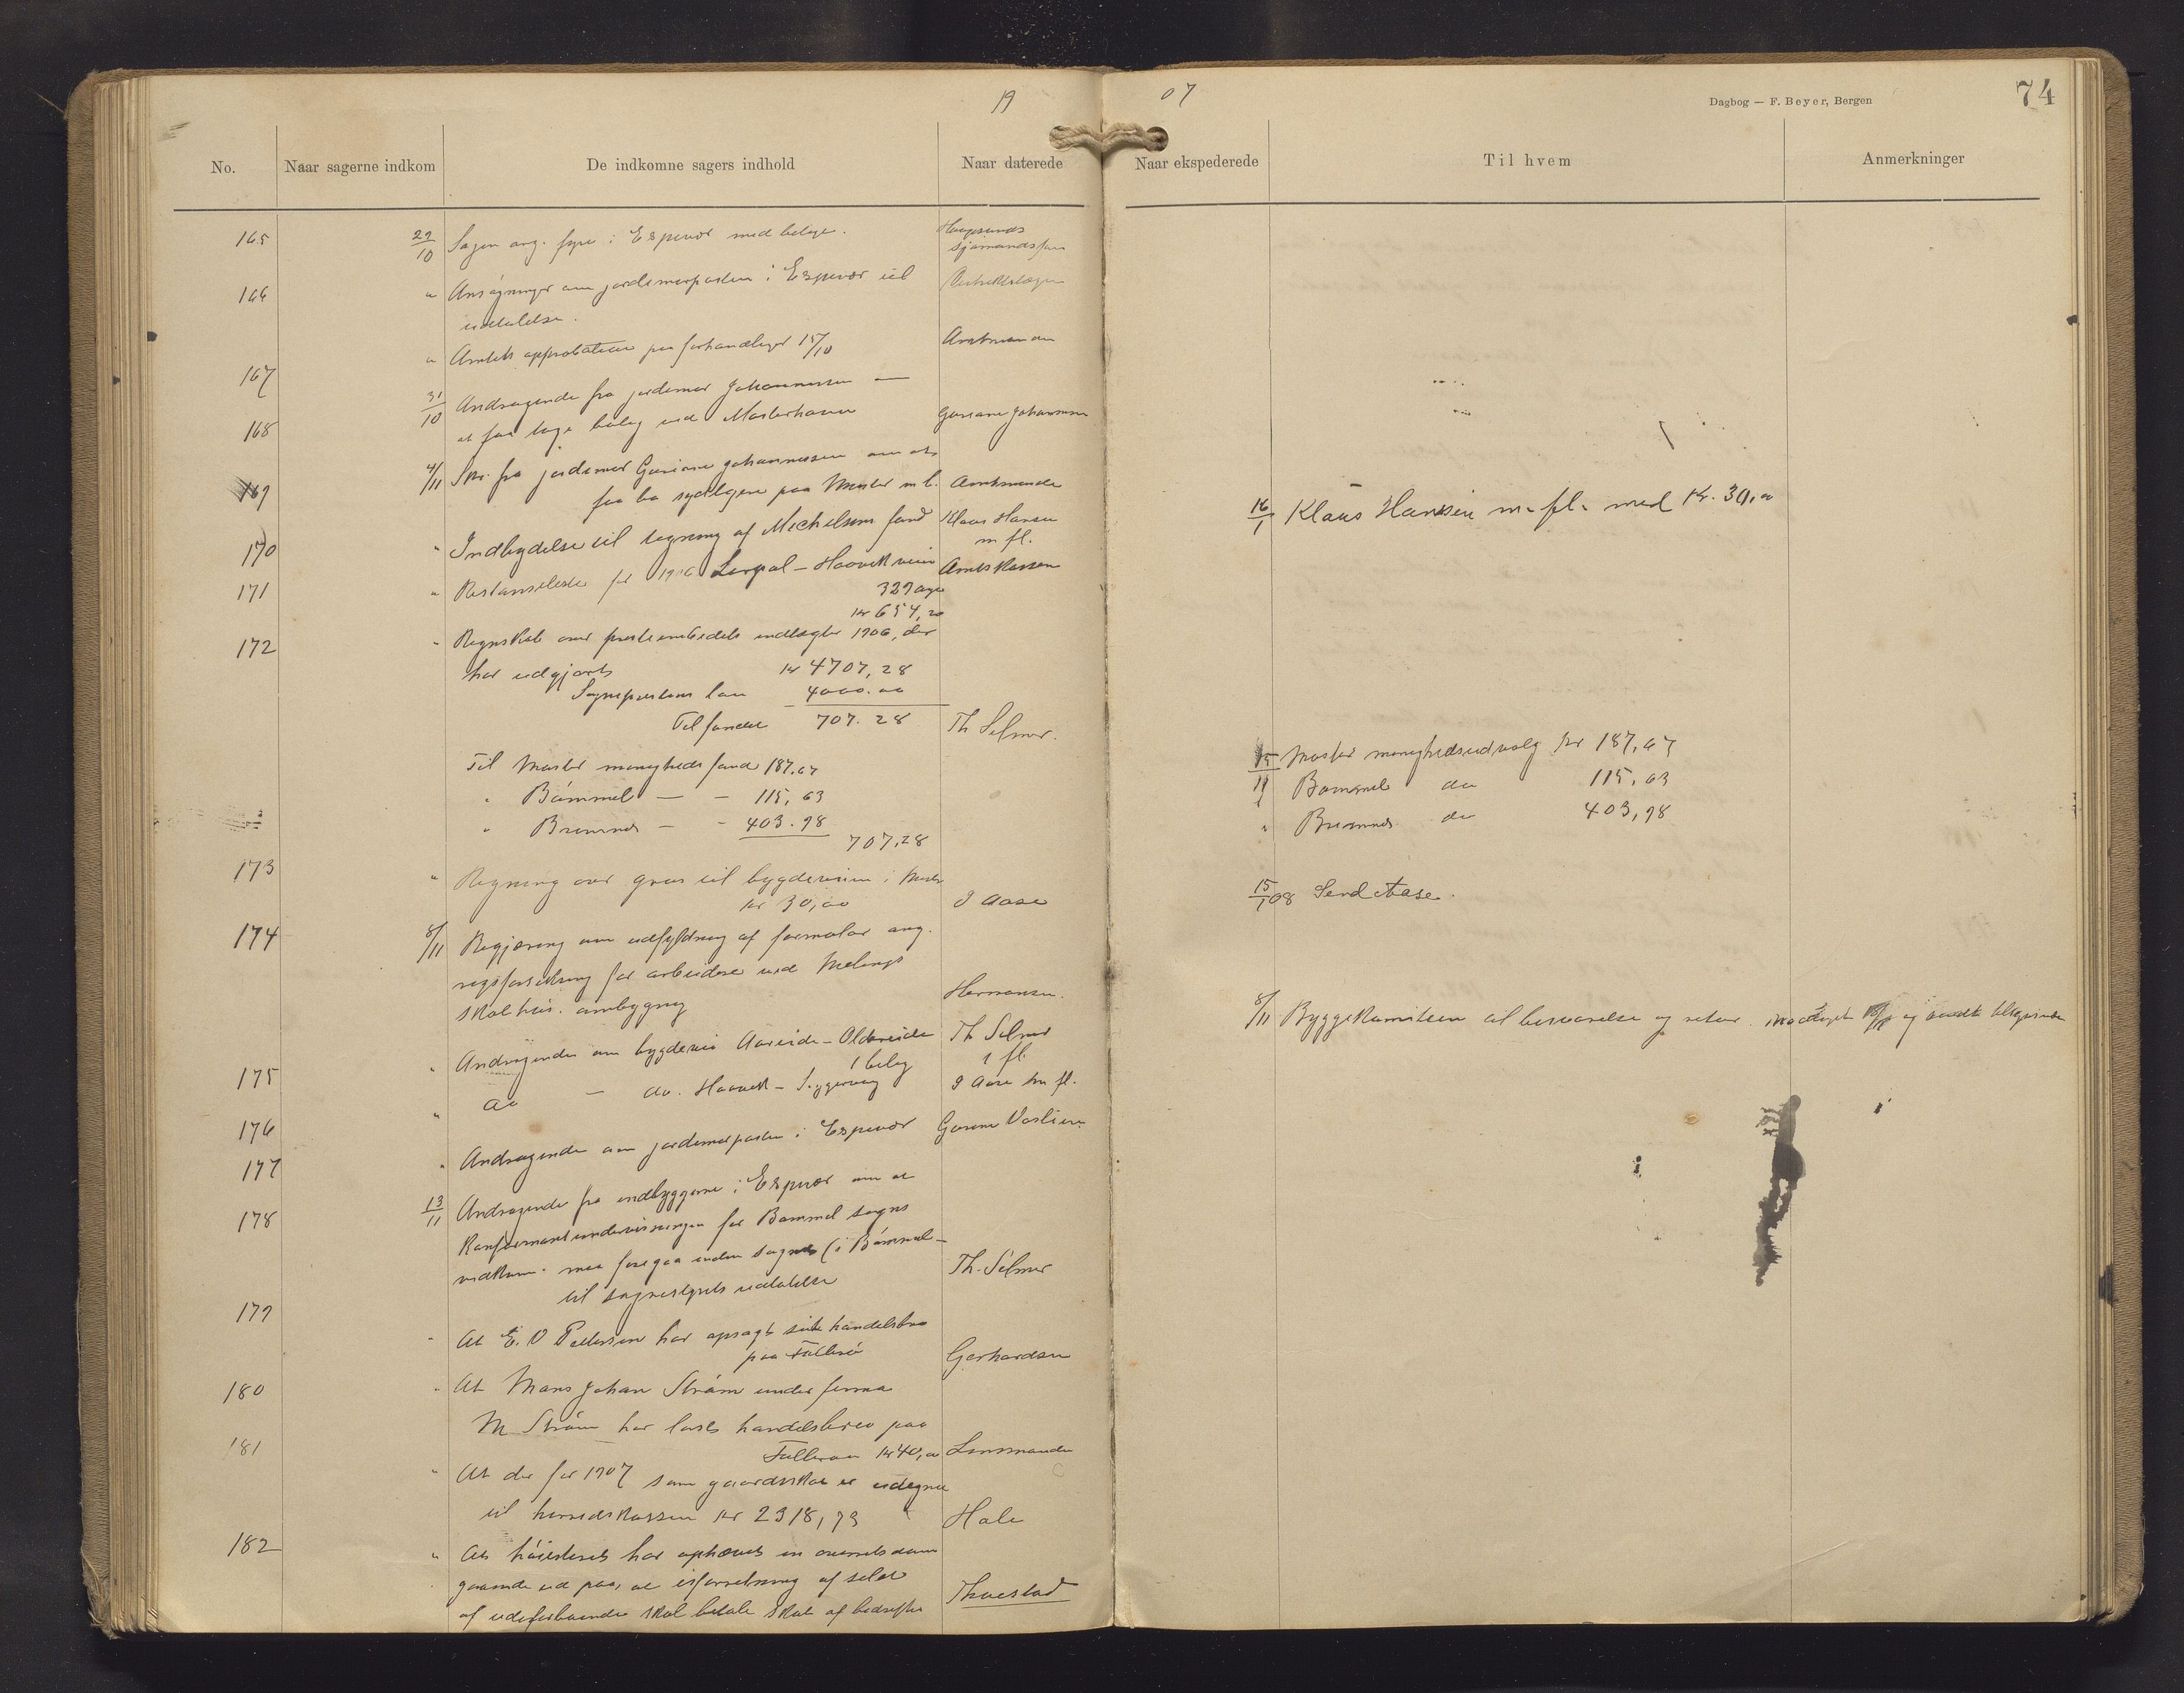 19 07
Dagbog — F. Beyer, Bergen
74
No.
Naar sagerne indkom
De indkomne sagers indhold
Naar daterede
Naar ekspederede
Til hvem
Anmerkninger
165 29/10 Sagen ang. fyre i Espevær med belage. Haugesunds
sjømandsfor
166 " Ansøgninger om jordemorposten i Espevær til
udtalelse.
" Amtets approbation paa forhandlinger 15/10 Amtmanden
167
31/10 Andragende fra jordemor Johannessen —
168 at faa tage bolig ved Mosterhavn Gurine Johannessen
169 4/11 Skr. fra jordemor Johannessen om at
faa bo sydligere paa Moster m b. Amtmanden
170 " Indbydelse til tegning af Michelsens fond Klaus Hansen
m fl.
16/1 Klaus Hansen m. fl. med Kr. 30,"
171 " Restanseliste for 1906 - Haavik veien Amtskassen
329
kr 654,20
172 " Regnskab over presteembedets indtægter 1906, der
har udgjort kr 4707,28
Sogneprestens løn 4000.00
Til fondet 707.28 Th Selmer.
Til Moster menigheds fond 187,67
" Bømmel — - 115,63
" Bremnes — - 403.98
707,28
15/11 Moster menighedsudvalg kr 187,67
" Bømmel do 115,63
" Bremnes do 403,98
173 " Regning over grus til bygdeveien i Moster
kr 30,00 J Aase
15/1 08 Send Aase.
174 8/11 Begjæring om udfyldning af formular ang.
for arbeidere ved Melings
skolhus. ombygning Hermansen.
8/11 Byggekomiteen til besvarelse og retur.
175 " Andragende om bygdevei - Th Selmer
1 belag 1 fl.
176 " do — do. Haavik - J Aase m fl.
177 " Andragende om jordemorposten i Espevær
178 13/11 Andragende fra indbyggerne i Espevær om at
Konfirmantundervisningen for Bømmel sogns
vedkom. maa foregaa inden sognet (i Bømmel -
til sognestyrets udtalelse Th. Selmer
179 " At E. O Pettersen har opsagt sit handelsbrev
paa Gerhardsen
180 " At Mons Johan Strøm under firma
M Strøm har løst handelsbrev paa
kr 40,00 Lensmanden
181 " At der for 1907 som gaardskat er udlignet
til herredskassen kr 2318,73
182 " At høiesteret har ophævet en overretsdom
gaaende ud paa, at af sild
af udenbyboende skal betale skat af bedriften